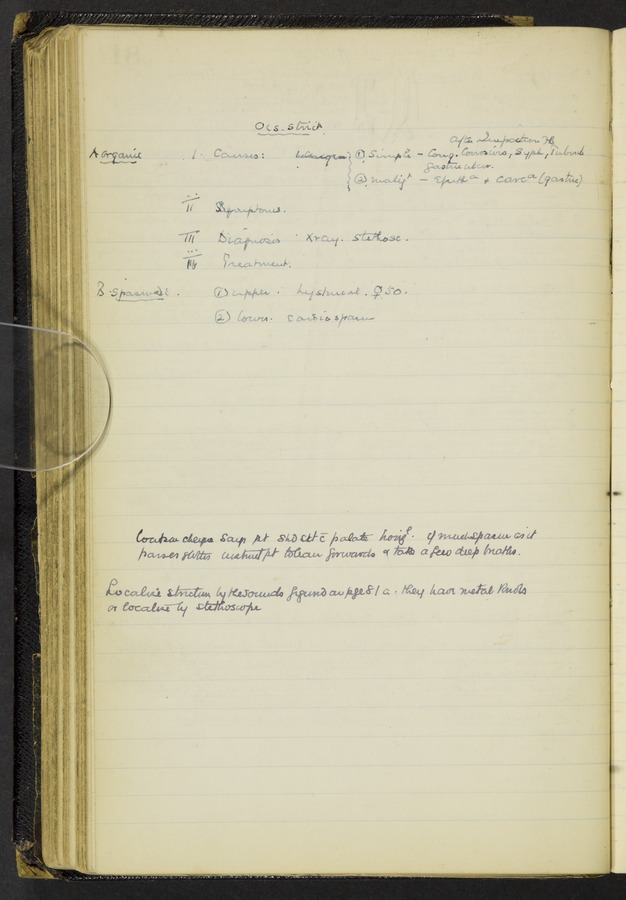 Oes. Strict.
After Inspection
A Organic I. Causes: ① Simple - Cong. Corrosive, Syph, Tubercle
Gastric ulcer.
② Malig^t - Epith^a & Carc^a (gastric)
II Symptoms.
III Diagnosis Xray. Stethosc.
IV Treatment.
B Spasmodic. ① upper. hysterical. ♀ 50.
② lower. cardiospasm
Watson Cheyne says pt shd sit c palate horiz^l. if much spasm as it
passes glottis instruct pt to lean forwards & take a few deep breaths.
Localise stricture by the sounds figured on page 81 a. they have metal knobs
or localise by stethoscope